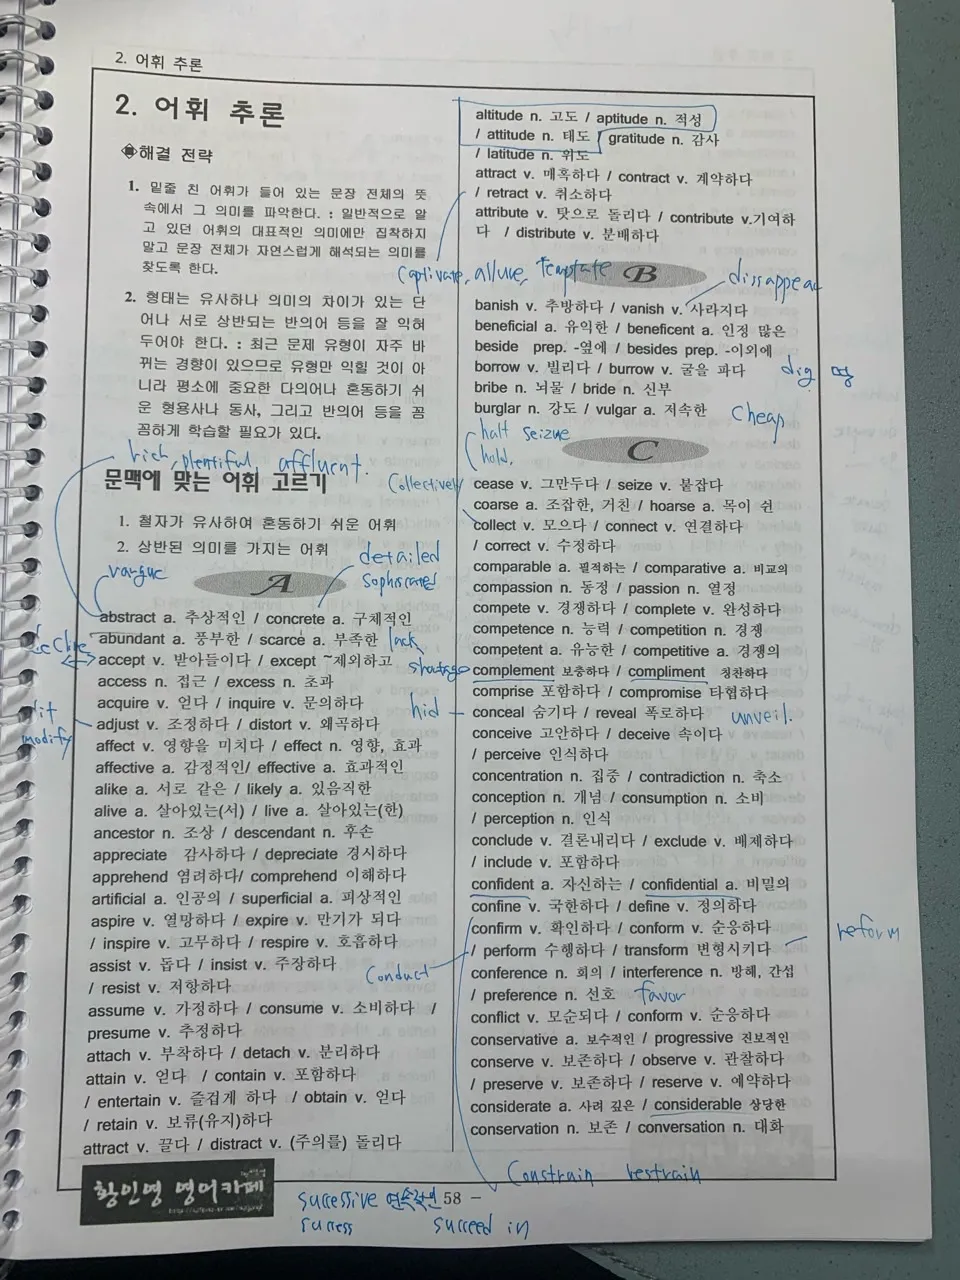 2. 어휘 추론
2. 어휘 추론
◈해결 전략
1. 밑줄 친 어휘가 들어 있는 문장 전체의 뜻
속에서 그 의미를 파악한다. : 일반적으로 알
고 있던 어휘의 대표적인 의미에만 집착하지
말고 문장 전체가 자연스럽게 해석되는 의미를
찾도록 한다.
2. 형태는 유사하나 의미의 차이가 있는 단
어나 서로 상반되는 반의어 등을 잘 익혀
두어야 한다. : 최근 문제 유형이 자주 바
뀌는 경향이 있으므로 유형만 익힐 것이 아
니라 평소에 중요한 다의어나 혼동하기 쉬
운 형용사나 동사, 그리고 반의어 등을 꼼
꼼하게 학습할 필요가 있다.
rich, plentiful, affluent.
문맥에 맞는 어휘 고르기
1. 철자가 유사하여 혼동하기 쉬운 어휘
2. 상반된 의미를 가지는 어휘
detailed
vargue
A
abstract a. 추상적인 / concrete a. 구체적인
abundant a. 풍부한 / scarce a. 부족한 lack
accept v. 받아들이다 / except ~제외하고 shortage
access n. 접근 / excess n. 초과
acquire v. 얻다 / inquire v. 문의하다
adjust v. 조정하다 / distort v. 왜곡하다
modify
affect v. 영향을 미치다 / effect n. 영향, 효과
affective a. 감정적인/ effective a. 효과적인
alike a. 서로 같은 / likely a. 있음직한
alive a. 살아있는(서) / live a. 살아있는(한)
ancestor n. 조상 / descendant n. 후손
appreciate 감사하다 / depreciate 경시하다
apprehend 염려하다/ comprehend 이해하다
artificial a. 인공의 / superficial a. 피상적인
aspire v. 열망하다 / expire v. 만기가 되다
/ inspire v. 고무하다 / respire v. 호흡하다
assist v. 돕다 / insist v. 주장하다
/ resist v. 저항하다
assume v. 가정하다 / consume v. 소비하다 /
presume v. 추정하다
attach v. 부착하다 / detach v. 분리하다
attain v. 얻다 / contain v. 포함하다
/ entertain v. 즐겁게 하다 / obtain v. 얻다
/ retain v. 보류(유지)하다
attract v. 끌다 / distract v. (주의를) 돌리다
altitude n. 고도 / aptitude n. 적성
/ attitude n. 태도 / gratitude n. 감사
/ latitude n. 위도
attract v. 매혹하다 / contract v. 계약하다
/ retract v. 취소하다
attribute v. 탓으로 돌리다 / contribute v.기여하
다 / distribute v. 분배하다
captivate, allure, temptate
B
dissappear
banish v. 추방하다 / vanish v. 사라지다
beneficial a. 유익한 / beneficent a. 인정 많은
beside prep. -옆에 / besides prep. -이외에
borrow v. 빌리다 / burrow v. 굴을 파다
dig 땅
bribe n. 뇌물 / bride n. 신부
burglar n. 강도 / vulgar a. 저속한
cheap
halt seizue
hold.
C
Collectively
cease v. 그만두다 / seize v. 붙잡다
coarse a. 조잡한, 거친 / hoarse a. 목이 쉰
collect v. 모으다 / connect v. 연결하다
/ correct v. 수정하다
comparable a. 필적하는 / comparative a. 비교의
compassion n. 동정 / passion n. 열정
compete v. 경쟁하다 / complete v. 완성하다
competence n. 능력 / competition n. 경쟁
competent a. 유능한 / competitive a. 경쟁의
complement 보충하다 / compliment 칭찬하다
comprise 포함하다 / compromise 타협하다
hid
conceal 숨기다 / reveal 폭로하다 unveil.
conceive 고안하다 / deceive 속이다
/ perceive 인식하다
concentration n. 집중 / contradiction n. 축소
conception n. 개념 / consumption n. 소비
/ perception n. 인식
conclude v. 결론내리다 / exclude v. 배제하다
/ include v. 포함하다
confident a. 자신하는 / confidential a. 비밀의
confine v. 국한하다 / define v. 정의하다
confirm v. 확인하다 / conform v. 순응하다
/ perform 수행하다 / transform 변형시키다
reform
Conduct
conference n. 회의 / interference n. 방해, 간섭
/ preference n. 선호 favor
conflict v. 모순되다 / conform v. 순응하다
conservative a. 보수적인 / progressive 진보적인
conserve v. 보존하다 / observe v. 관찰하다
/ preserve v. 보존하다 / reserve v. 예약하다
considerate a. 사려 깊은 / considerable 상당한
conservation n. 보존 / conversation n. 대화
Constrain restrain
황인영 영어카페
58 -
successive
success succeed in